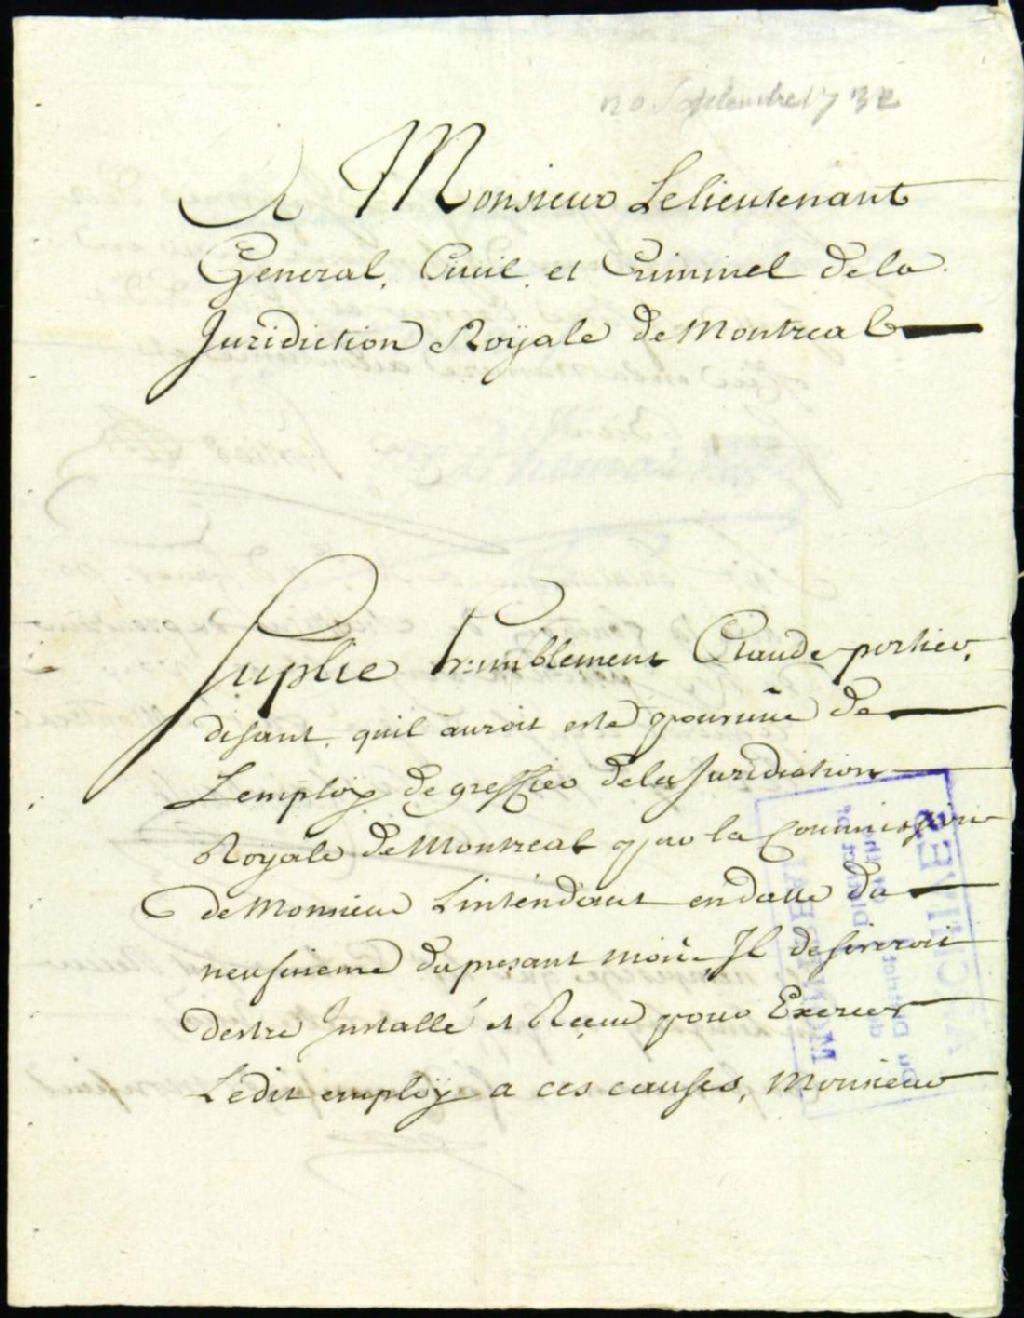 20 Septembre 1732
A Monsieur Lelieutenant
General, Ciuil, et Criminel de la
Juridiction Royale de Montreal
Suplie humblement Claude porlier,
disant, quil auroit esté pouruüe de
Lemploy de greffier dela Juridiction
Royale de Montreal par la Commission
de Monsieur Lintendant en datte du
neufuieme du presant mois, Il desireroit
destre Installé et Reçeu pour Exercer
Ledit employ a ces causes, Monsieur